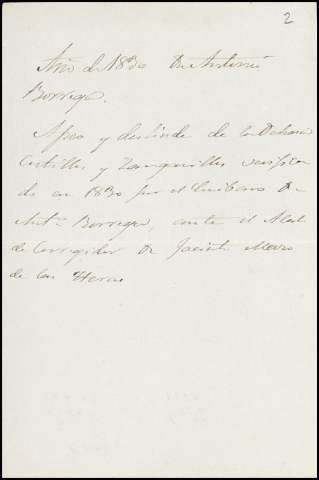 2
Año de 1830 Dn Antonio
Borrego.
Apeo y deslinde de la Dehesa
Castillo y Zanquillo verifica
do en 1830 por el Escribano Dn
Antº Borrego, ante el Alcal
de Corregidor Dn Jacinto
de las Heras